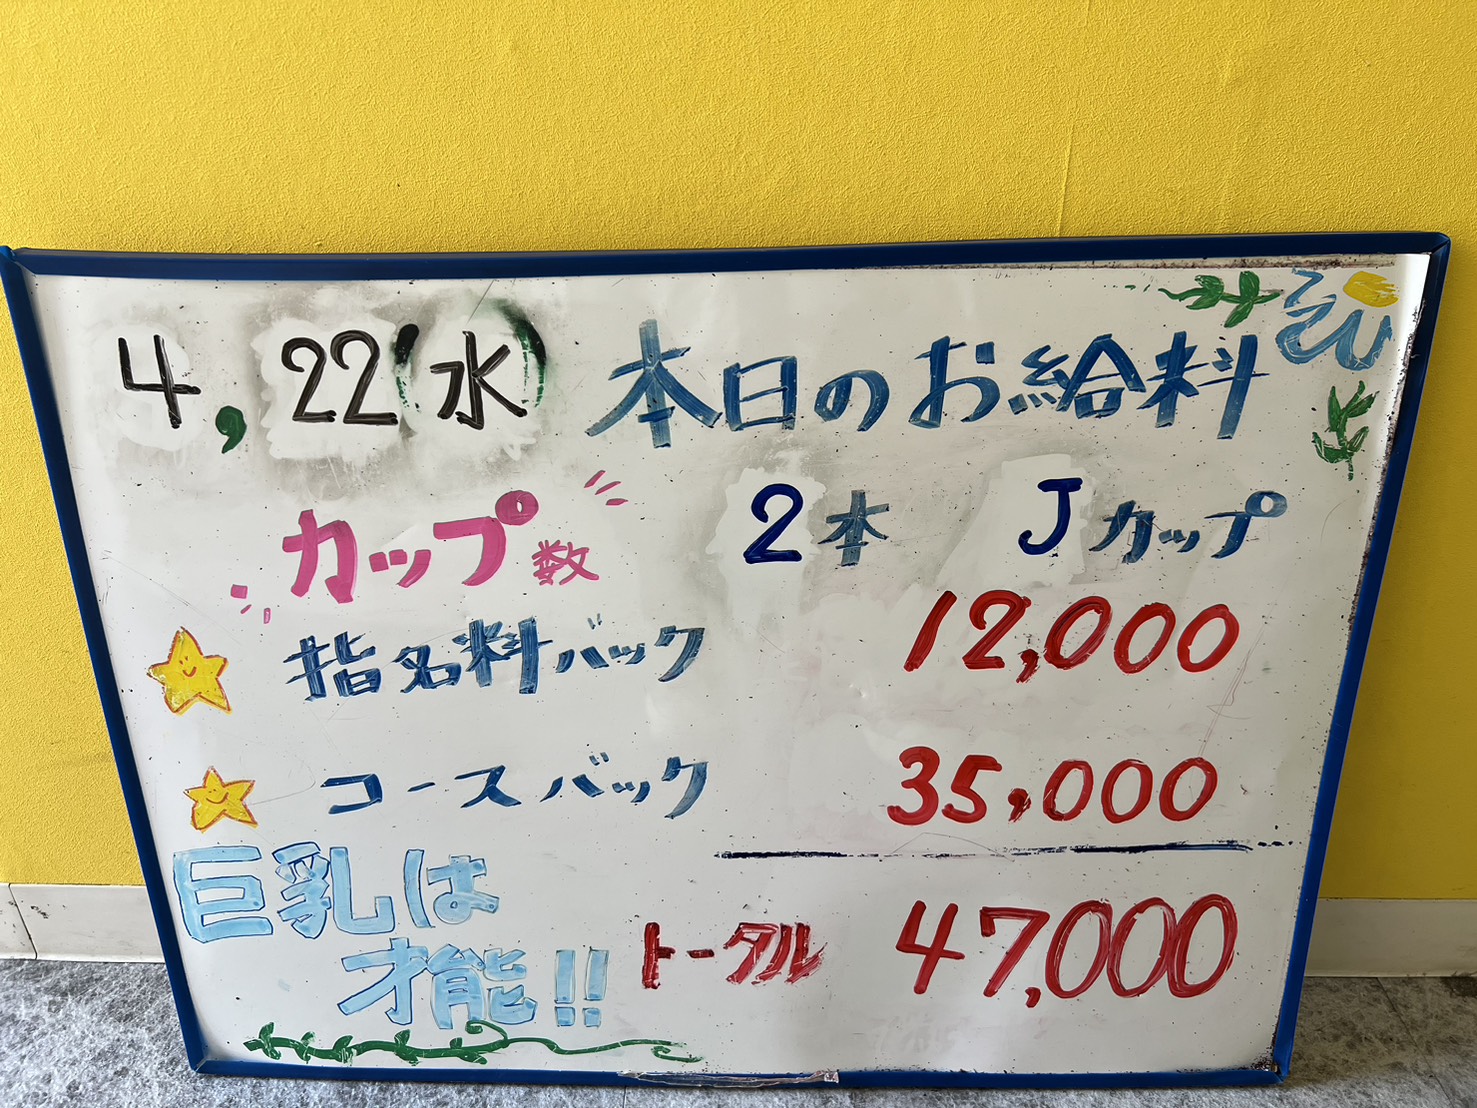 4,22(水) 本日のお給料
カップ数 2本 Jカップ
指名料バック 12,000
コースバック 35,000
巨乳は
才能!!
トータル 47,000